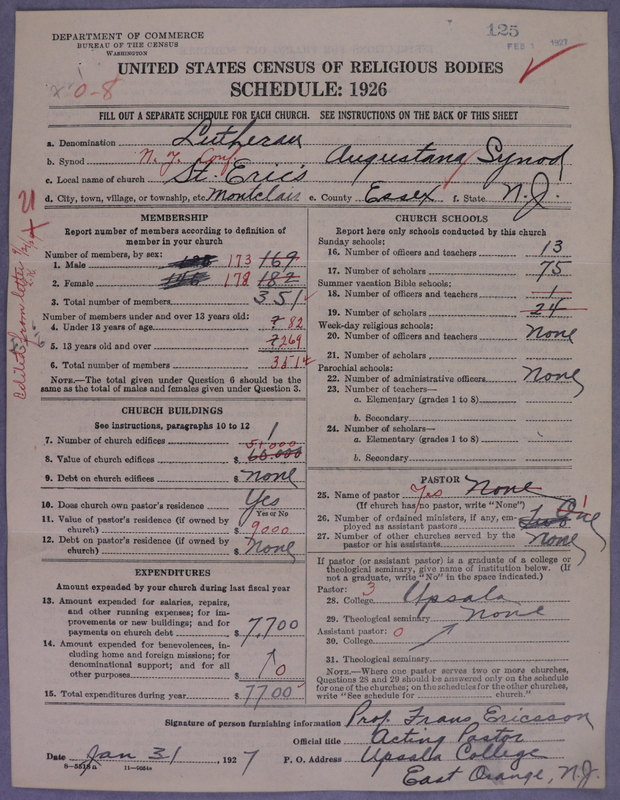 DEPARTMENT OF COMMERCE
BUREAU OF THE CENSUS
WASHINGTON
125
FEB 1 1927
0-8
UNITED STATES CENSUS OF RELIGIOUS BODIES
SCHEDULE: 1926
FILL OUT A SEPARATE SCHEDULE FOR EACH CHURCH. SEE INSTRUCTIONS ON THE BACK OF THIS SHEET
a. Denomination Lutheran
b. Synod N. Y. Conf. Augustana Synod
c. Local name of church St. Eric's
d. City, town, village, or township, etc. Montclair e. County Essex f. State N. J.
MEMBERSHIP
Report number of members according to definition of
member in your church
Number of members, by sex:
1. Male 173 169
2. Female 178 182
3. Total number of members 351
Number of members under and over 13 years old:
4. Under 13 years of age ? 82
5. 13 years old and over ? 269
6. Total number of members 351
NOTE.—The total given under Question 6 should be the
same as the total of males and females given under Question 3.
CHURCH BUILDINGS
See instructions, paragraphs 10 to 12
7. Number of church edifices 1
51,000
8. Value of church edifices $ 60.000
9. Debt on church edifices $ none
10. Does church own pastor's residence Yes
Yes or No
11. Value of pastor's residence (if owned by
church) $ 9000
12. Debt on pastor's residence (if owned by
church) $ None
EXPENDITURES
Amount expended by your church during last fiscal year
13. Amount expended for salaries, repairs,
and other running expenses; for im-
provements or new buildings; and for
payments on church debt $ 7,700
14. Amount expended for benevolences, in-
cluding home and foreign missions; for
denominational support; and for all
other purposes 0
15. Total expenditures during year $ 7700
CHURCH SCHOOLS
Report here only schools conducted by this church
Sunday schools:
16. Number of officers and teachers 13
17. Number of scholars 75
Summer vacation Bible schools:
18. Number of officers and teachers 1
19. Number of scholars 24
Week-day religious schools:
20. Number of officers and teachers None
21. Number of scholars
Parochial schools:
22. Number of administrative officers None
23. Number of teachers—
a. Elementary (grades 1 to 8)
b. Secondary
24. Number of scholars—
a. Elementary (grades 1 to 8)
b. Secondary
PASTOR
25. Name of pastor Yes None
(If church has no pastor, write "None")
26. Number of ordained ministers, if any, em-
ployed as assistant pastors One 1
27. Number of other churches served by the
pastor or his assistants None
If pastor (or assistant pastor) is a graduate of a college or
theological seminary, give name of institution below. (If
not a graduate, write "No" in the space indicated.)
Pastor: 3
28. College Upsala
29. Theological seminary None
Assistant pastor: 0
30. College
31. Theological seminary
NOTE.—Where one pastor serves two or more churches,
Questions 28 and 29 should be answered only on the schedule
for one of the churches; on the schedules for the other churches,
write "See schedule for church."
Signature of person furnishing information Prof. Frans Ericsson
Official title Acting Pastor
Date Jan 31, 1927 P. O. Address Upsala College
East Orange, N.J.
8-5518a 11-9254a